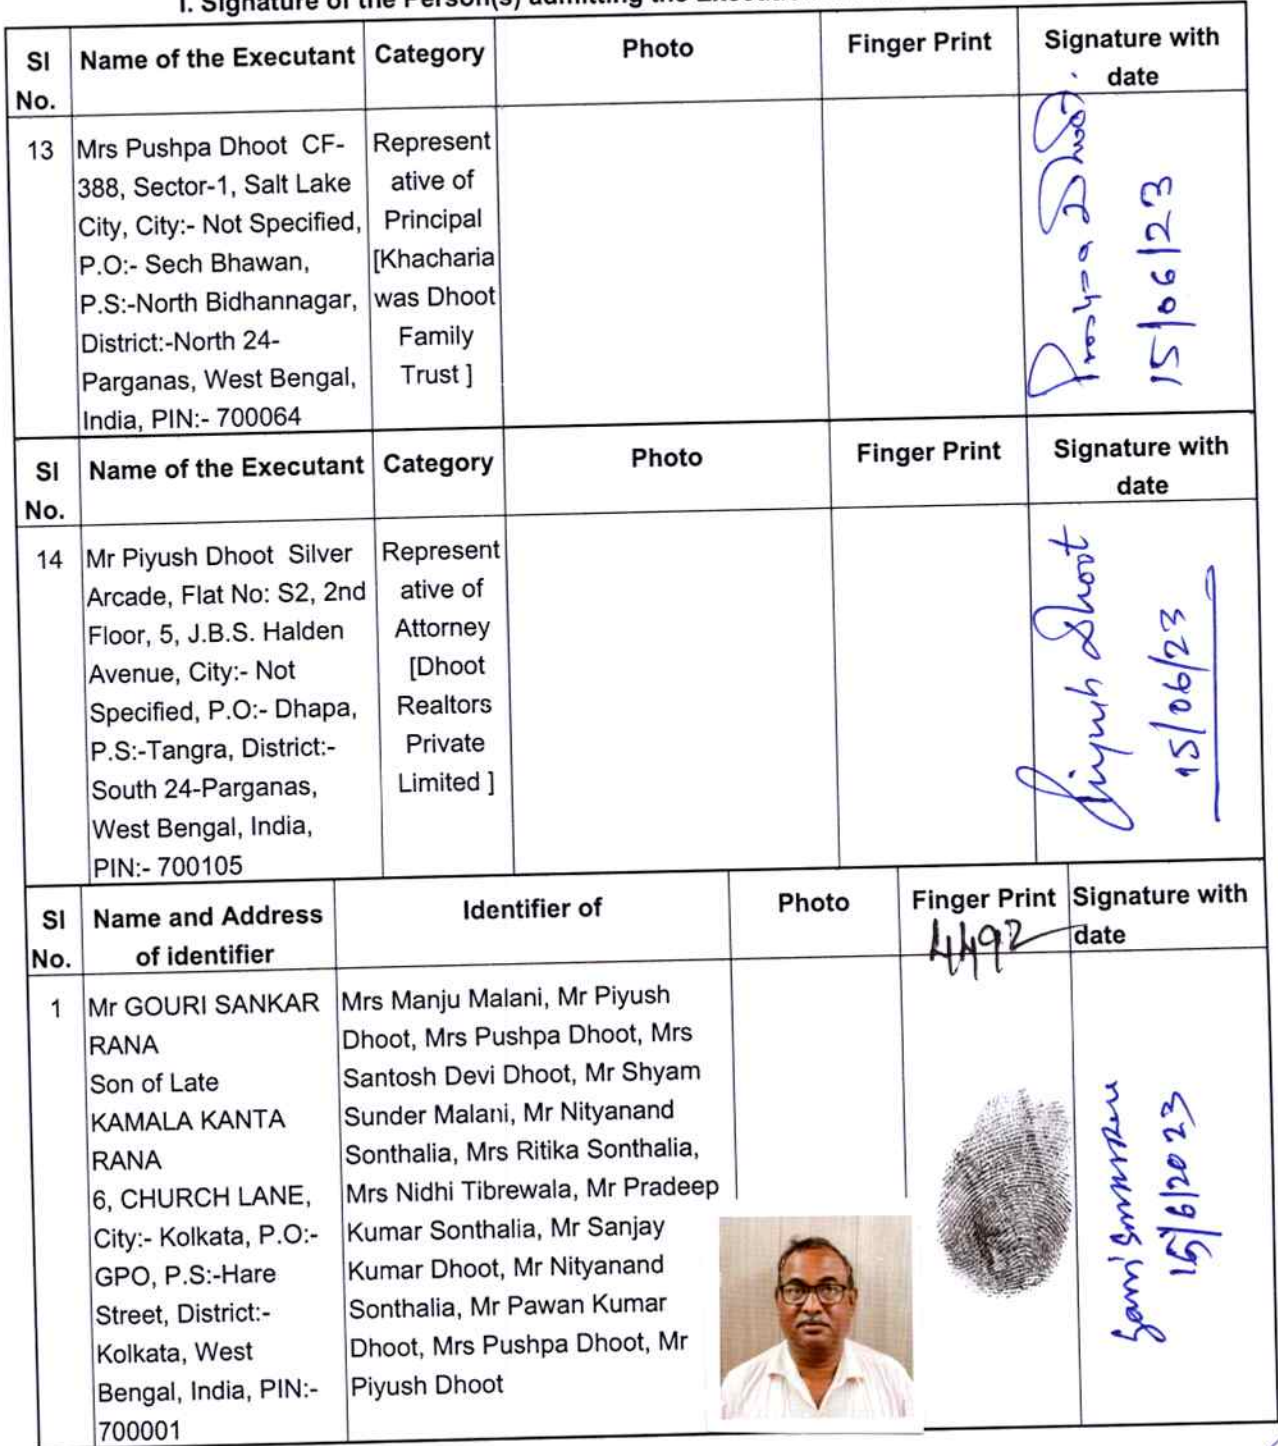 I. Signature of the Person(s) admitting the Execution
Sl No. | Name of the Executant | Category | Photo | Finger Print | Signature with date
13
Mrs Pushpa Dhoot CF-
388, Sector-1, Salt Lake
City, City:- Not Specified,
P.O:- Sech Bhawan,
P.S:-North Bidhannagar,
District:-North 24-
Parganas, West Bengal,
India, PIN:- 700064
Represent
ative of
Principal
[Khacharia
was Dhoot
Family
Trust ]
Pushpa Dhoot.
15/06/23
Sl No. | Name of the Executant | Category | Photo | Finger Print | Signature with date
14
Mr Piyush Dhoot Silver
Arcade, Flat No: S2, 2nd
Floor, 5, J.B.S. Halden
Avenue, City:- Not
Specified, P.O:- Dhapa,
P.S:-Tangra, District:-
South 24-Parganas,
West Bengal, India,
PIN:- 700105
Represent
ative of
Attorney
[Dhoot
Realtors
Private
Limited ]
Piyush Dhoot
15/06/23
Sl No. | Name and Address of identifier | Identifier of | Photo | Finger Print | Signature with date
4492
1
Mr GOURI SANKAR
RANA
Son of Late
KAMALA KANTA
RANA
6, CHURCH LANE,
City:- Kolkata, P.O:-
GPO, P.S:-Hare
Street, District:-
Kolkata, West
Bengal, India, PIN:-
700001
Mrs Manju Malani, Mr Piyush
Dhoot, Mrs Pushpa Dhoot, Mrs
Santosh Devi Dhoot, Mr Shyam
Sunder Malani, Mr Nityanand
Sonthalia, Mrs Ritika Sonthalia,
Mrs Nidhi Tibrewala, Mr Pradeep
Kumar Sonthalia, Mr Sanjay
Kumar Dhoot, Mr Nityanand
Sonthalia, Mr Pawan Kumar
Dhoot, Mrs Pushpa Dhoot, Mr
Piyush Dhoot
15/6/2023